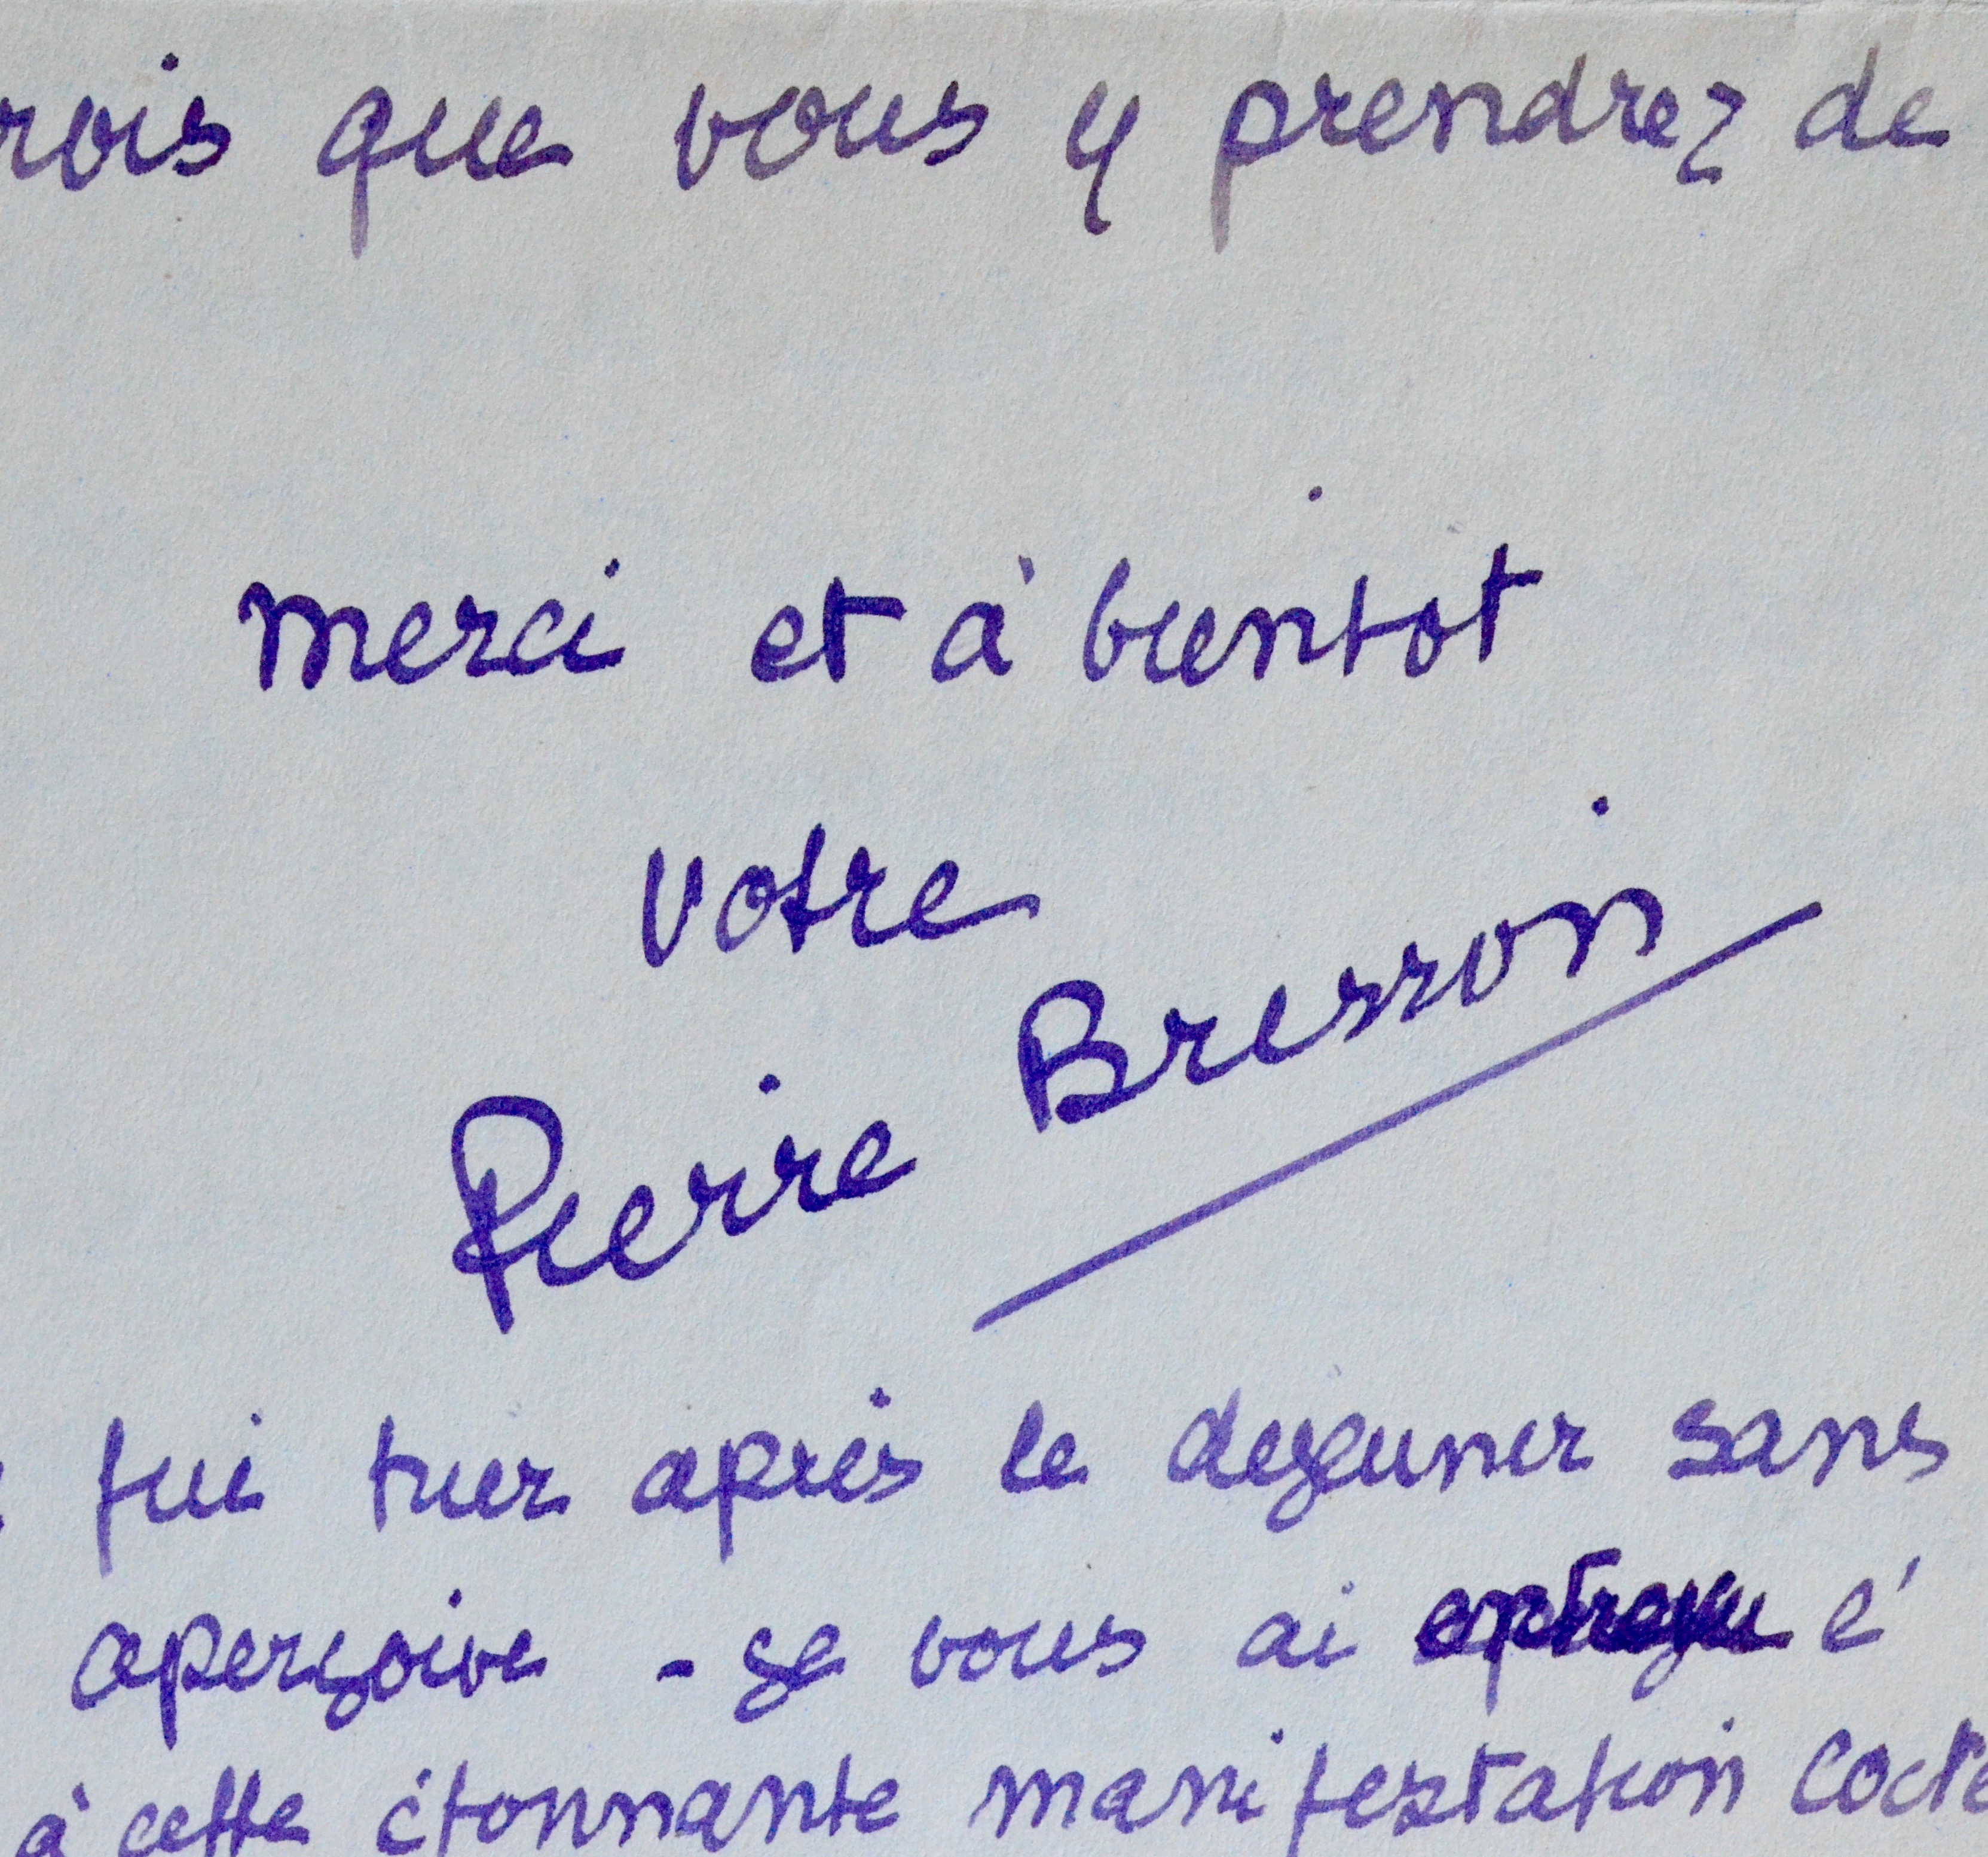 rois que vous y prendrez de
merci et à bientot
votre
Pierre Bresson
fui hier après le dejeuner sans
aperçoive - je vous ai é
à cette étonnante manifestation Cocte